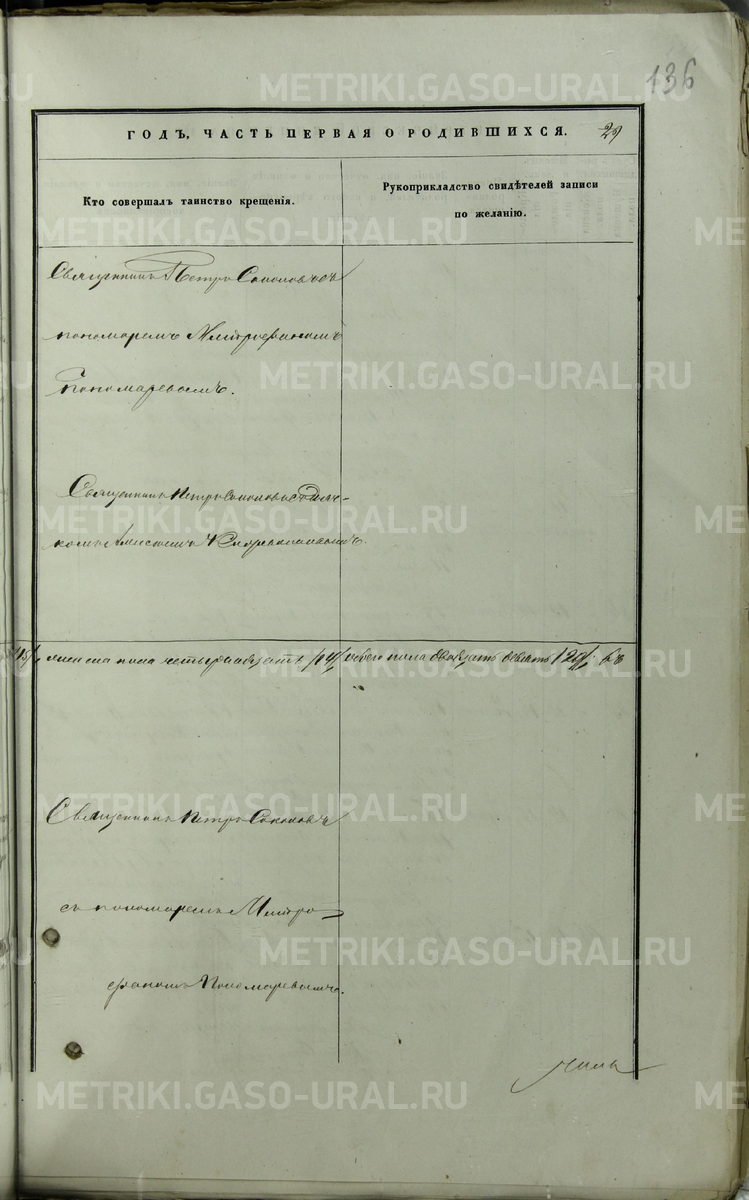 136
ГОДЪ, ЧАСТЬ ПЕРВАЯ О РОДИВШИХСЯ. 29
Кто совершалъ таинство крещенія.
Рукоприкладство свидѣтелей записи
по желанію.
Священникъ Петръ Соколовъ съ
пономаремъ Митрофаномъ
Пономаревымъ.
Священникъ Петръ Соколовъ съ Дьяч-
комъ
женска пола четырнадцать /14/ обоего пола двадцать девять /29/.
Священникъ Петръ Соколовъ
съ пономаремъ Митро
фаномъ Пономаревымъ.
METRIKI.GASO-URAL.RU